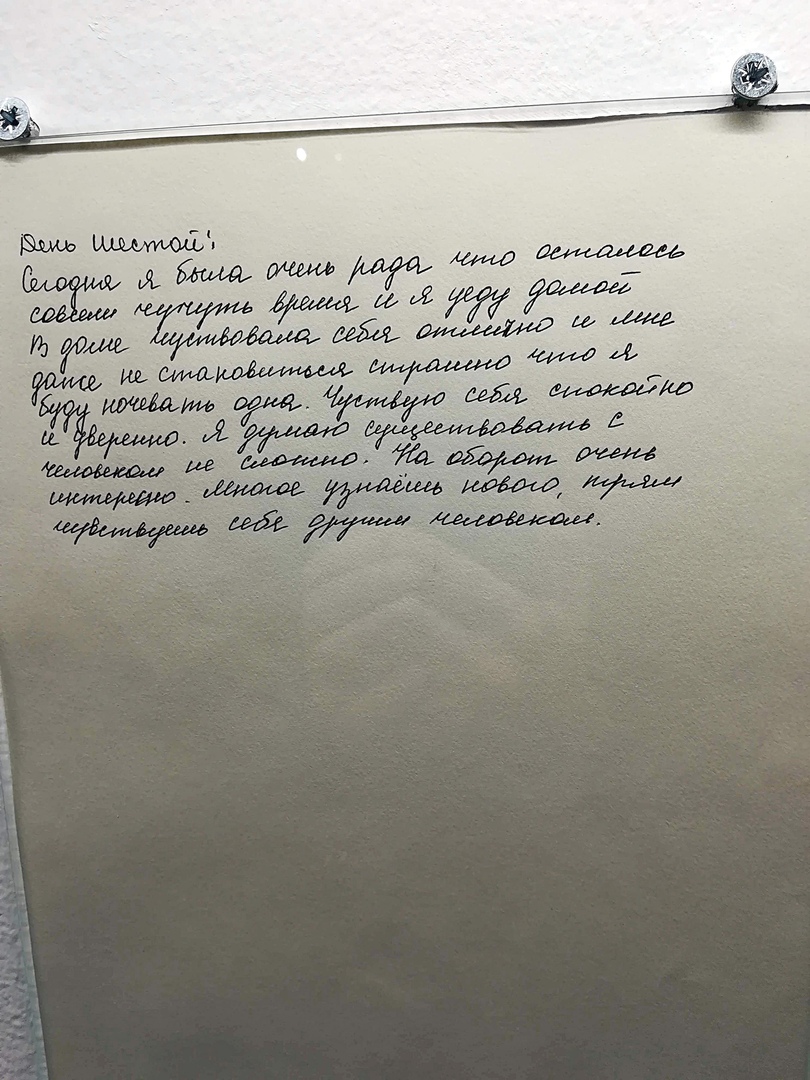 День шестой:
Сегодня я была очень рада что осталось
совсем чучуть время и я уеду домой
В доме чуствовала себя отлично и мне
даже не становиться страшно что я
буду ночевать одна. Чуствую себя спокойно
и уверенно. Я думаю существовать с
человеком не сложно. На оборот очень
интересно. Многое узнаёшь нового, прям
чувствуешь себя другим человеком.